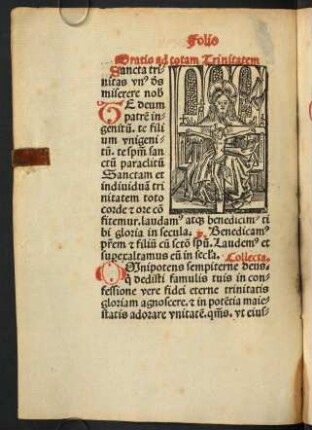 Folio
Oratio ad totam Trinitatem
Sancta tri-
nitas vn⁹ d̄s
miserere nob
TE deum
patrē in-
genitū. te fili
um vnigeni-
tū. te sp̄m sanc
tū paraclitū
Sanctam et
indiuiduā tri
nitatem toto
corde ⁊ ore cō
fitemur. laudam⁹ atq̄ꝫ benedicim⁹ ti
bi gloria in secula. ꝟ. Benedicam⁹
pr̄em ⁊ filiū cū sctō sp̄ū. Laudem⁹ et
superexaltamus eū in secl̄a. Collecta.
OMnipotens sempiterne deus.
q̇ dedisti famulis tuis in con-
fessione vere fidei eterne trinitatis
gloriam agnoscere. ⁊ in potētia maie-
statis adorare vnitatē. qs̄. vt eius-